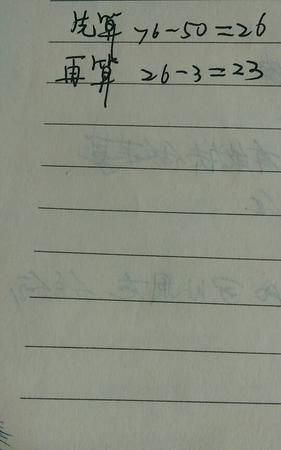 先算 76-50=26
再算 26-3=23